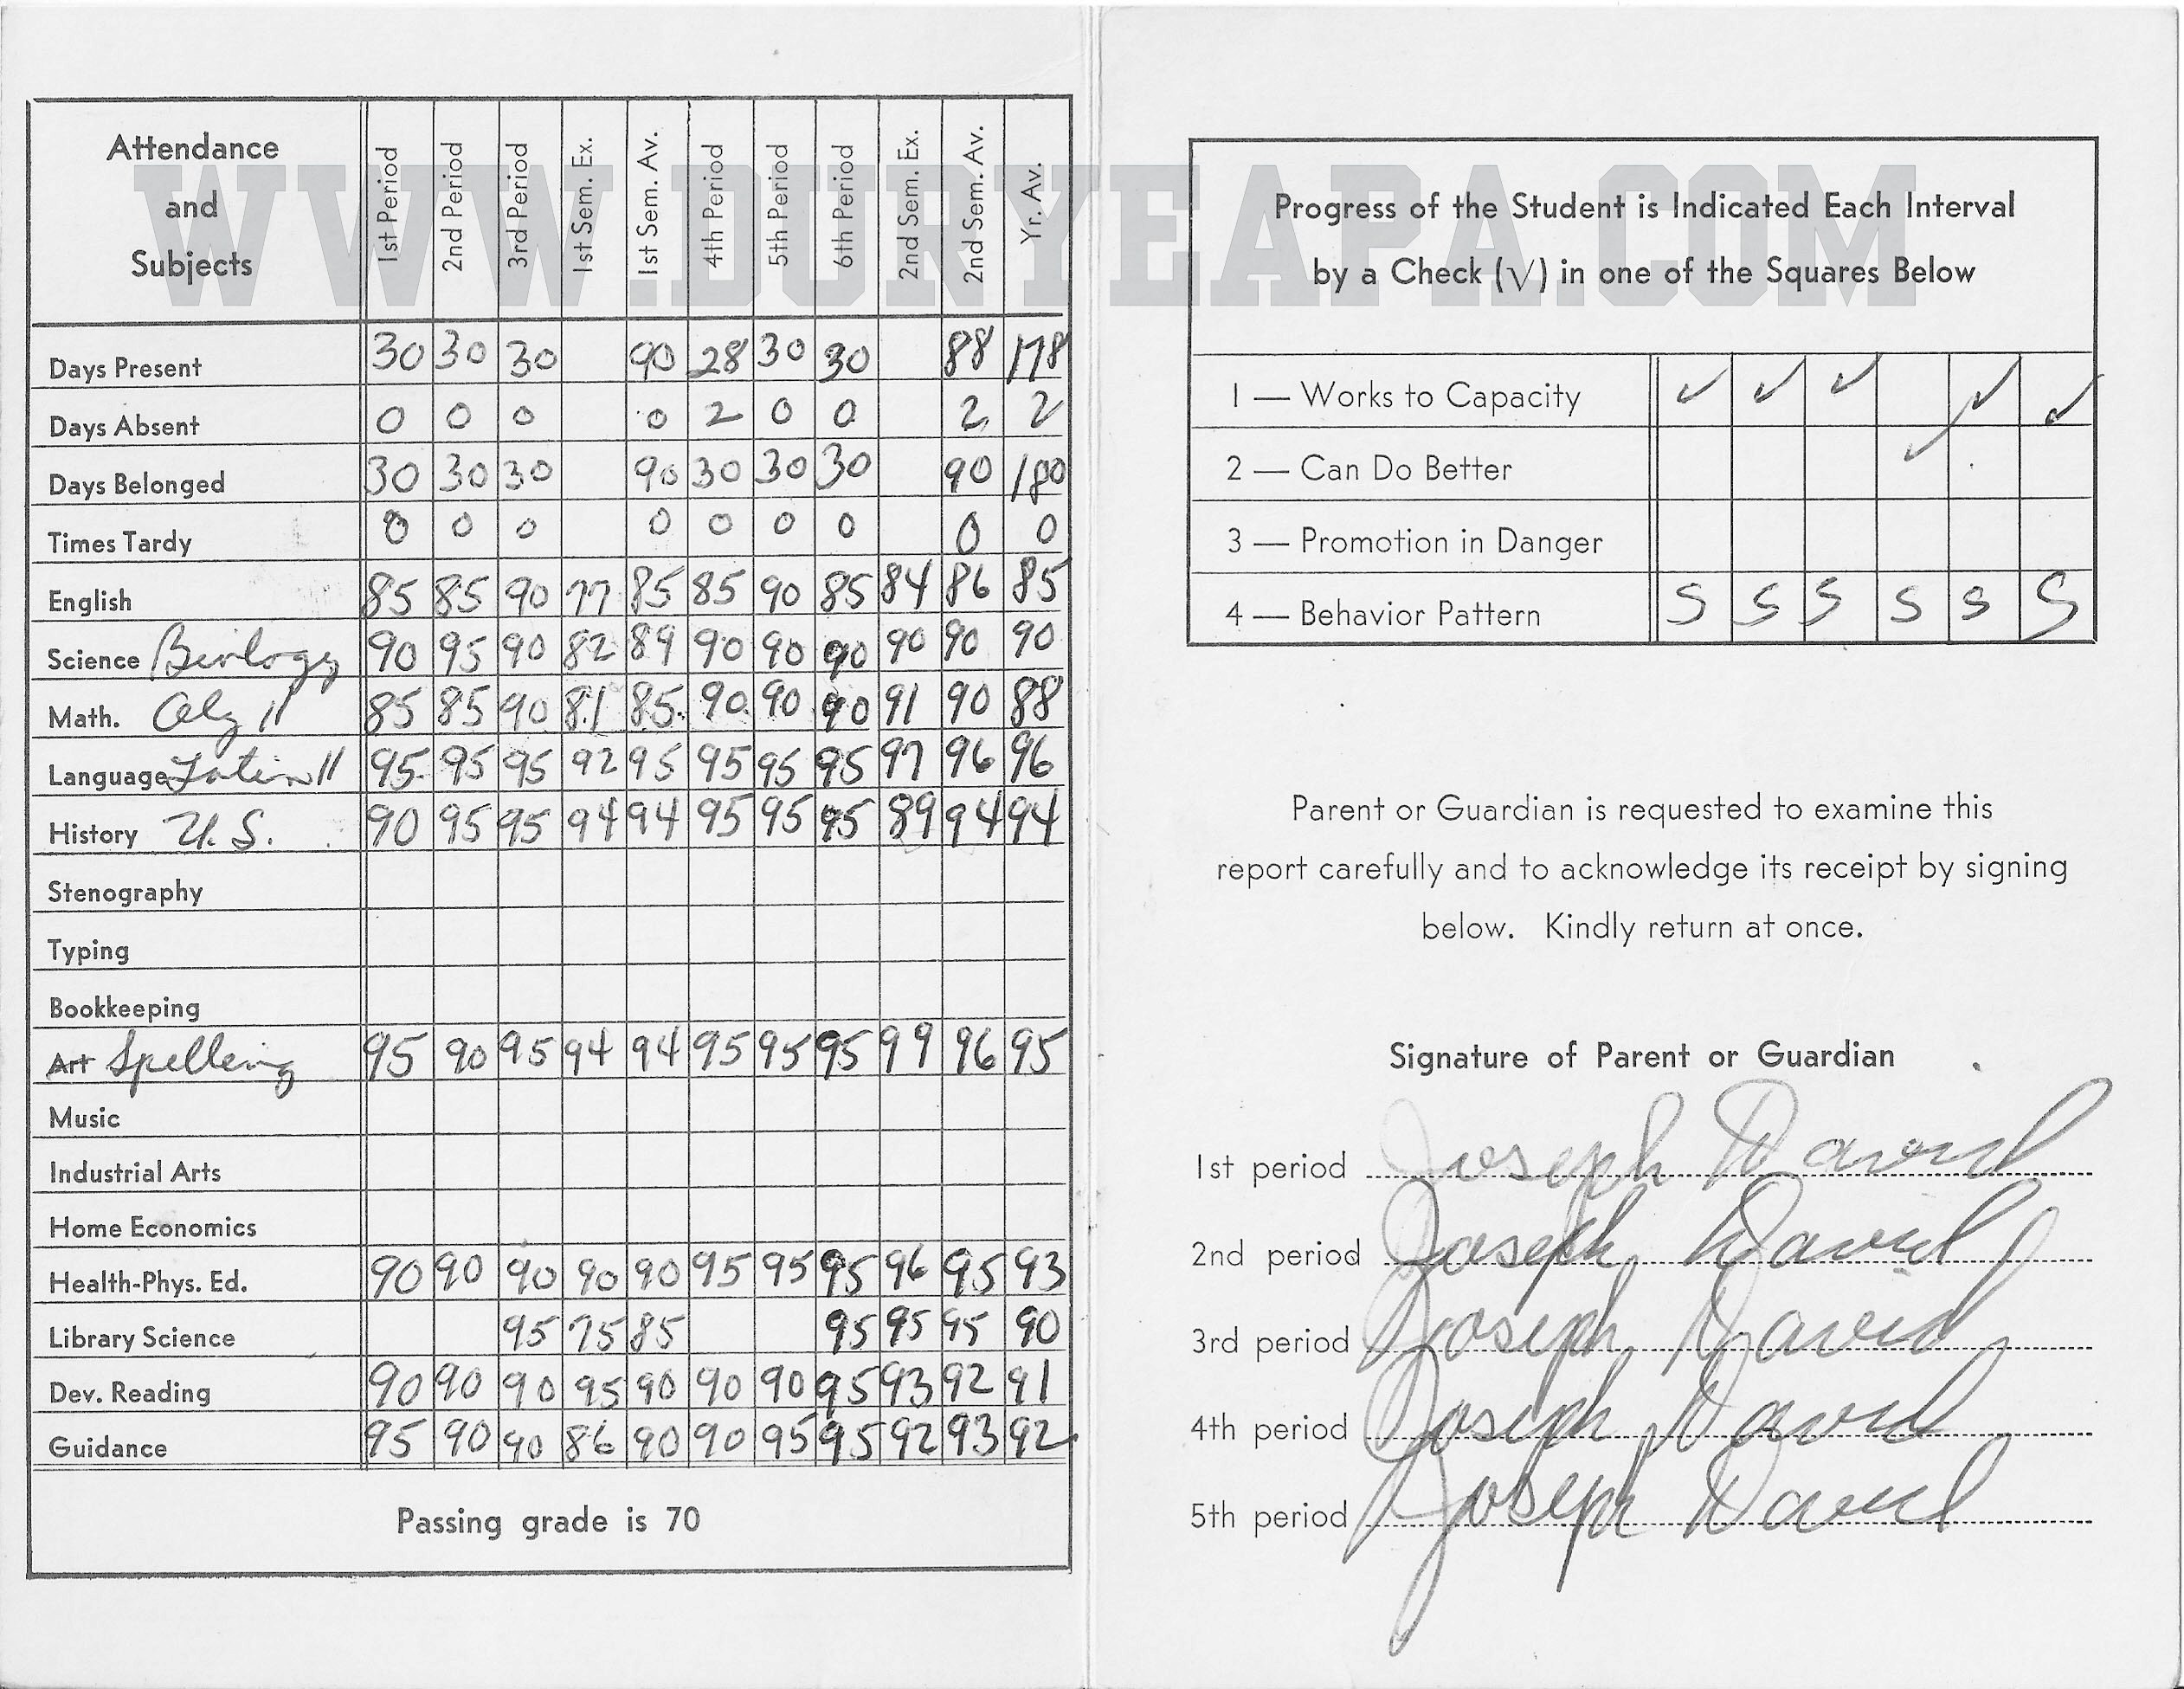 WWW.DURYEAPA.COM
Attendance and Subjects 1st Period 2nd Period 3rd Period 1st Sem. Ex. 1st Sem. Av. 4th Period 5th Period 6th Period 2nd Sem. Ex. 2nd Sem. Av. Yr. Av.
Days Present 30 30 30 90 28 30 30 88 178
Days Absent 0 0 0 0 2 0 0 2 2
Days Belonged 30 30 30 90 30 30 30 90 180
Times Tardy 0 0 0 0 0 0 0 0 0
English 85 85 90 77 85 85 90 85 84 86 85
Science Biology 90 95 90 82 89 90 90 90 90 90 90
Math. Alg II 85 85 90 81 85 90 90 90 91 90 88
Language Latin II 95 95 95 92 95 95 95 95 97 96 96
History U.S. 90 95 95 94 94 95 95 95 89 94 94
Stenography
Typing
Bookkeeping
Art Spelling 95 90 95 94 94 95 95 95 99 96 95
Music
Industrial Arts
Home Economics
Health-Phys. Ed. 90 90 90 90 90 95 95 95 96 95 93
Library Science 95 75 85 95 95 95 90
Dev. Reading 90 90 90 95 90 90 90 95 93 92 91
Guidance 95 90 90 86 90 90 95 95 92 93 92
Passing grade is 70
Progress of the Student is Indicated Each Interval
by a Check (√) in one of the Squares Below
1 — Works to Capacity ✓ ✓ ✓ ✓ ✓
2 — Can Do Better ✓
3 — Promotion in Danger
4 — Behavior Pattern S S S S S S
Parent or Guardian is requested to examine this
report carefully and to acknowledge its receipt by signing
below. Kindly return at once.
Signature of Parent or Guardian
1st period Joseph David
2nd period Joseph David
3rd period Joseph David
4th period Joseph David
5th period Joseph David